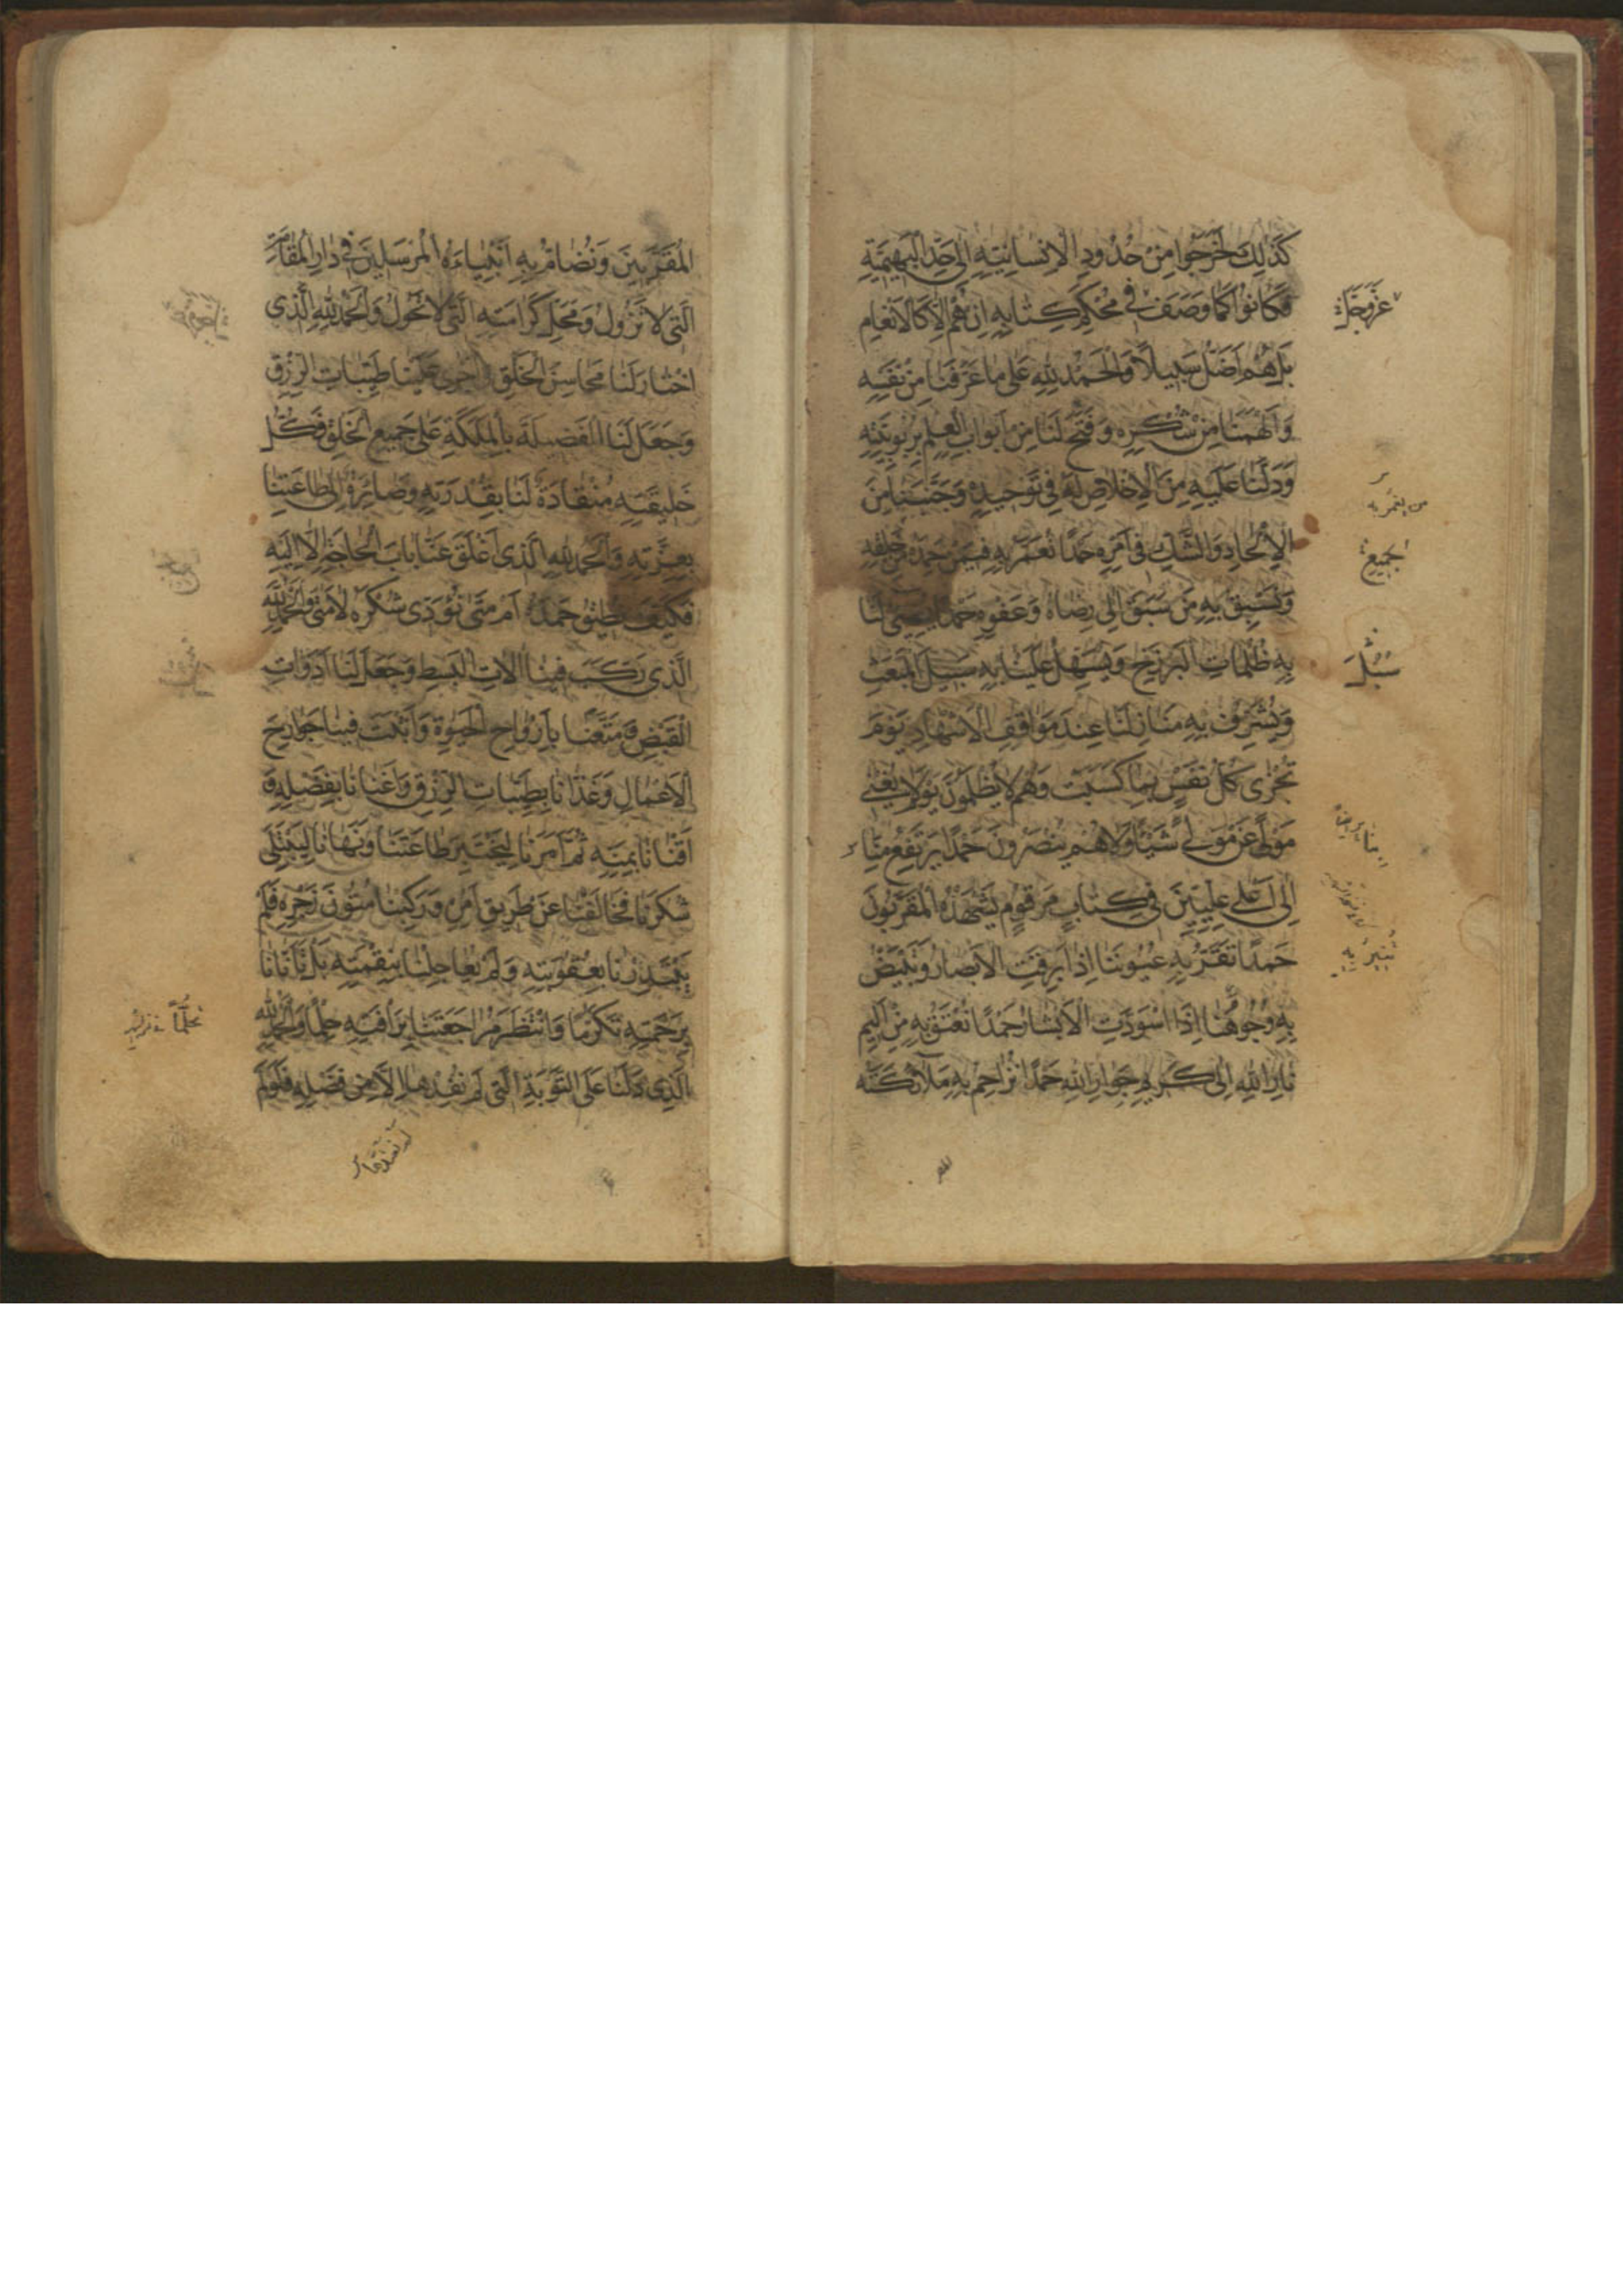 كَذٰلِكَ لَخَرَجُوا مِنْ حُدُودِ الْاِنْسَانِيَّةِ اِلٰى حَدِّ الْبَهِيمِيَّةِ
فَكَانُوا كَمَا وَصَفَ فِى مُحْكَمِ كِتَابِهِ اِنْ هُمْ اِلَّا كَالْاَنْعَامِ
عَزَّوَجَلَّ
بَلْ هُمْ اَضَلُّ سَبِيلًا وَالْحَمْدُ لِلّٰهِ عَلٰى مَا عَرَّفَنَا مِنْ نَفْسِهِ
وَاَلْهَمَنَا مِنْ شُكْرِهِ وَفَتَحَ لَنَا مِنْ اَبْوَابِ الْعِلْمِ بِرُبُوبِيَّتِهِ
وَدَلَّنَا عَلَيْهِ مِنَ الْاِخْلَاصِ لَهُ فِى تَوْحِيدِهِ وَجَنَّبَنَا مِنَ
الْاِلْحَادِ وَالشَّكِّ فِى اَمْرِهِ حَمْدًا نُعَمَّرُ بِهِ فِيمَنْ حَمِدَهُ مِنْ خَلْقِهِ
وَنَسْبِقُ بِهِ مَنْ سَبَقَ اِلٰى رِضَاهُ وَعَفْوِهِ حَمْدًا يُضِيئُ لَنَا
بِهِ ظُلُمَاتِ الْبَرْزَخِ وَيُسَهِّلُ عَلَيْنَا بِهِ سَبِيلَ الْمَبْعَثِ
سُبُلَ
وَيُشَرِّفُ بِهِ مَنَازِلَنَا عِنْدَ مَوَاقِفِ الْاَشْهَادِ يَوْمَ
تُجْزٰى كُلُّ نَفْسٍ بِمَا كَسَبَتْ وَهُمْ لَا يُظْلَمُونَ يَوْمَ لَا يُغْنِى
مَوْلًى عَنْ مَوْلًى شَيْئًا وَلَا هُمْ يُنْصَرُونَ حَمْدًا يَرْتَفِعُ مِنَّا
اِلٰى اَعْلٰى عِلِّيِّينَ فِى كِتَابٍ مَرْقُومٍ يَشْهَدُهُ الْمُقَرَّبُونَ
حَمْدًا تَقَرُّ بِهِ عُيُونُنَا اِذَا بَرِقَتِ الْاَبْصَارُ وَتَبْيَضُّ
بِهِ وُجُوهُنَا اِذَا اسْوَدَّتِ الْاَبْشَارُ حَمْدًا نُعْتَقُ بِهِ مِنْ اَلِيمِ
نَارِ اللّٰهِ اِلٰى كَرِيمِ جِوَارِ اللّٰهِ حَمْدًا نُزَاحِمُ بِهِ مَلَائِكَتَهُ
الْمُقَرَّبِينَ وَنُضَامُّ بِهِ اَنْبِيَاءَهُ الْمُرْسَلِينَ فِى دَارِ الْمُقَامَةِ
الَّتِى لَا تَزُولُ وَمَحَلِّ كَرَامَتِهِ الَّتِى لَا تَحُولُ وَالْحَمْدُ لِلّٰهِ الَّذِى
اخْتَارَ لَنَا مَحَاسِنَ الْخَلْقِ وَاَجْرٰى عَلَيْنَا طَيِّبَاتِ الرِّزْقِ
وَجَعَلَ لَنَا الْفَضِيلَةَ بِالْمَلَكَةِ عَلٰى جَمِيعِ الْخَلْقِ فَكُلُّ
خَلِيقَتِهِ مُنْقَادَةٌ لَنَا بِقُدْرَتِهِ وَصَائِرَةٌ اِلٰى طَاعَتِنَا
بِعِزَّتِهِ وَالْحَمْدُ لِلّٰهِ الَّذِى اَغْلَقَ عَنَّا بَابَ الْحَاجَةِ اِلَّا اِلَيْهِ
فَكَيْفَ نُطِيقُ حَمْدَهُ اَمْ مَتٰى نُؤَدِّى شُكْرَهُ لَا مَتٰى وَالْحَمْدُ لِلّٰهِ
الَّذِى رَكَّبَ فِينَا اٰلَاتِ الْبَسْطِ وَجَعَلَ لَنَا اَدَوَاتِ
الْقَبْضِ وَمَتَّعَنَا بِاَرْوَاحِ الْحَيٰوةِ وَاَثْبَتَ فِينَا جَوَارِحَ
الْاَعْمَالِ وَغَذَّانَا بِطَيِّبَاتِ الرِّزْقِ وَاَغْنَانَا بِفَضْلِهِ وَ
اَقْنَانَا بِمَنِّهِ ثُمَّ اَمَرَنَا لِيَخْتَبِرَ طَاعَتَنَا وَنَهَانَا لِيَبْتَلِىَ
شُكْرَنَا فَخَالَفْنَا عَنْ طَرِيقِ اَمْرِهِ وَرَكِبْنَا مُتُونَ زَجْرِهِ فَلَمْ
يَبْتَدِرْنَا بِعُقُوبَتِهِ وَلَمْ يُعَاجِلْنَا بِنِقْمَتِهِ بَلْ تَاَنَّانَا
بِرَحْمَتِهِ تَكَرُّمًا وَانْتَظَرَ مُرَاجَعَتَنَا بِرَاْفَتِهِ حِلْمًا وَالْحَمْدُ لِلّٰهِ
الَّذِى دَلَّنَا عَلَى التَّوْبَةِ الَّتِى لَمْ نُفِدْهَا اِلَّا مِنْ فَضْلِهِ فَلَوْ لَمْ